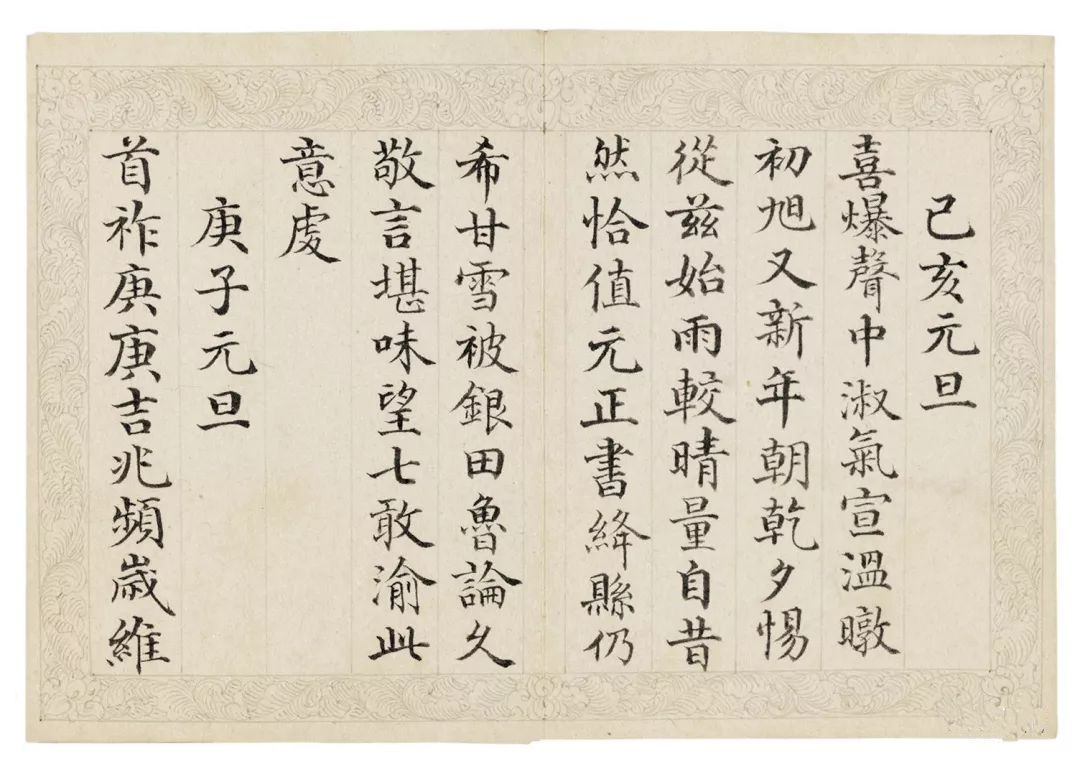 己亥元旦
喜爆聲中淑氣宣溫暾
初旭又新年朝乾夕惕
從茲始雨較晴量自昔
然恰值元正書絳縣仍
希甘雪被銀田魯論久
敬言堪味望七敢渝此
意虔
庚子元旦
首祚庚庚吉兆頻歲維